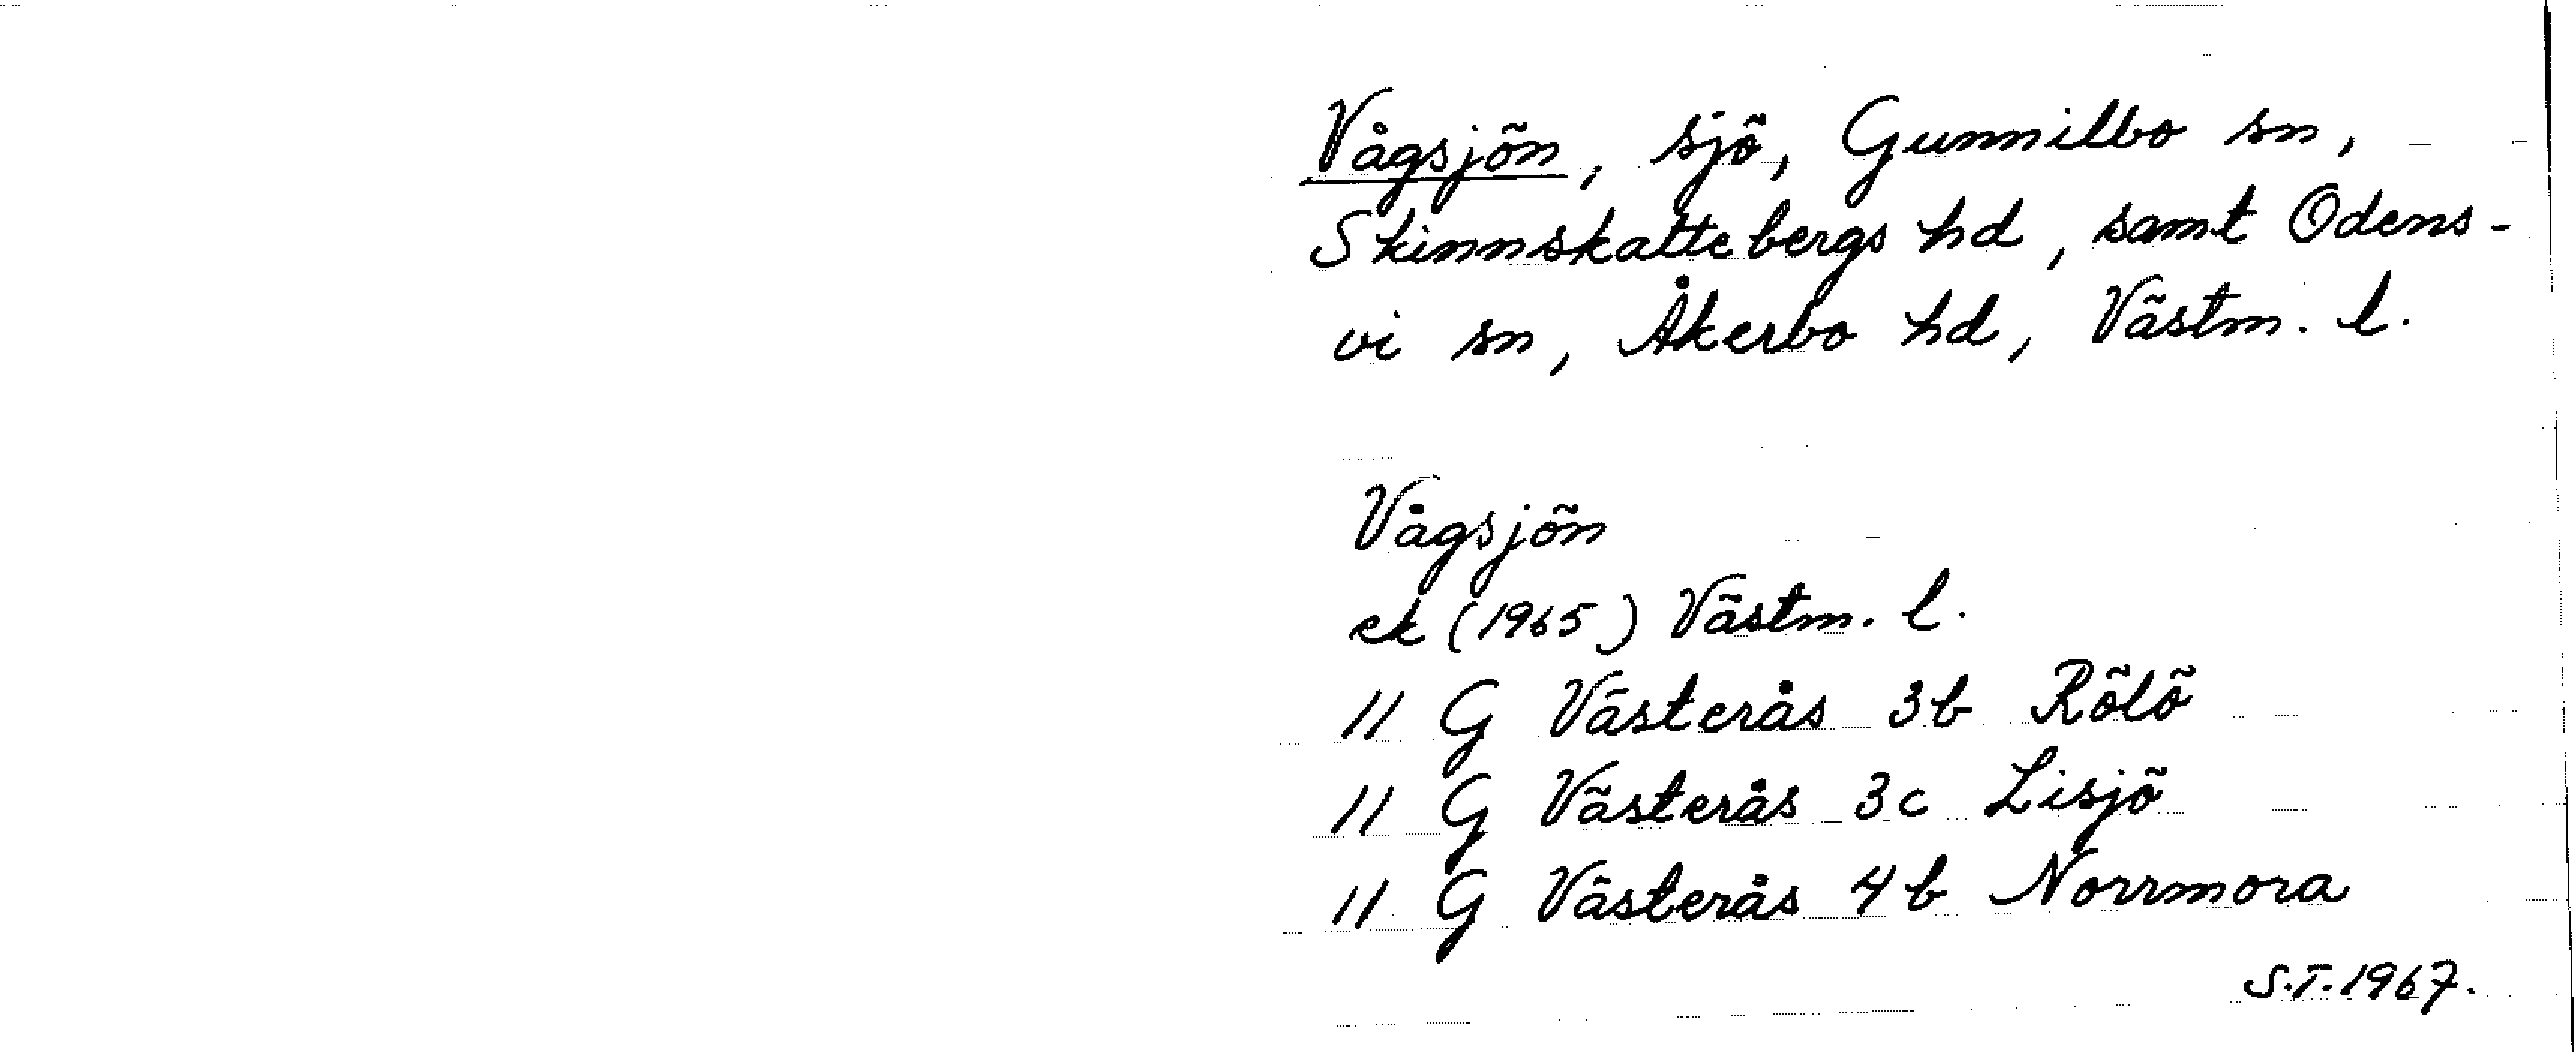 Vågsjön, sjö, Gunnilbo sn,
Skinnskattebergs hd, samt Odens-
vi sn, Åkerbo hd, Västm. l.
Vågsjön
ek (1965) Västm. l.
11 G Västerås 3b Rölö
11 G Västerås 3c Lisjö
11 G Västerås 4b Norrmora
S.T. 1967.